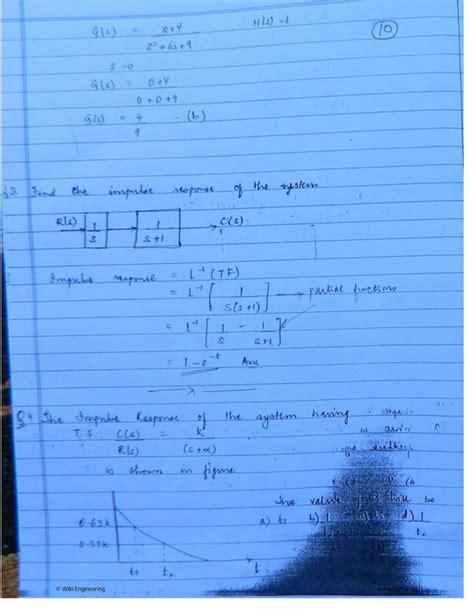 G(s) = s+4 / s²+6s+9 H(s) = 1 (10)
s → 0
G(s) = 0+4 / 0+0+9
G(s) = 4/9 - (b)
Find the impulse response of the system
R(s) → 1/s → 1/s+1 → C(s)
Impulse response = L⁻¹ (TF)
= L⁻¹ [ 1 / s(s+1) ] → partial fractions
= L⁻¹ [ 1/s - 1/s+1 ]
= 1-e^-t Ans
x
Q4 The Impulse Response of the system having
T.F. C(s)/R(s) = K/(s+α)
is shown in figure
The value will be
0.63k
a) t₁ b) d) 1/t₂
t₁ t₂ t
© Wiki Engineering